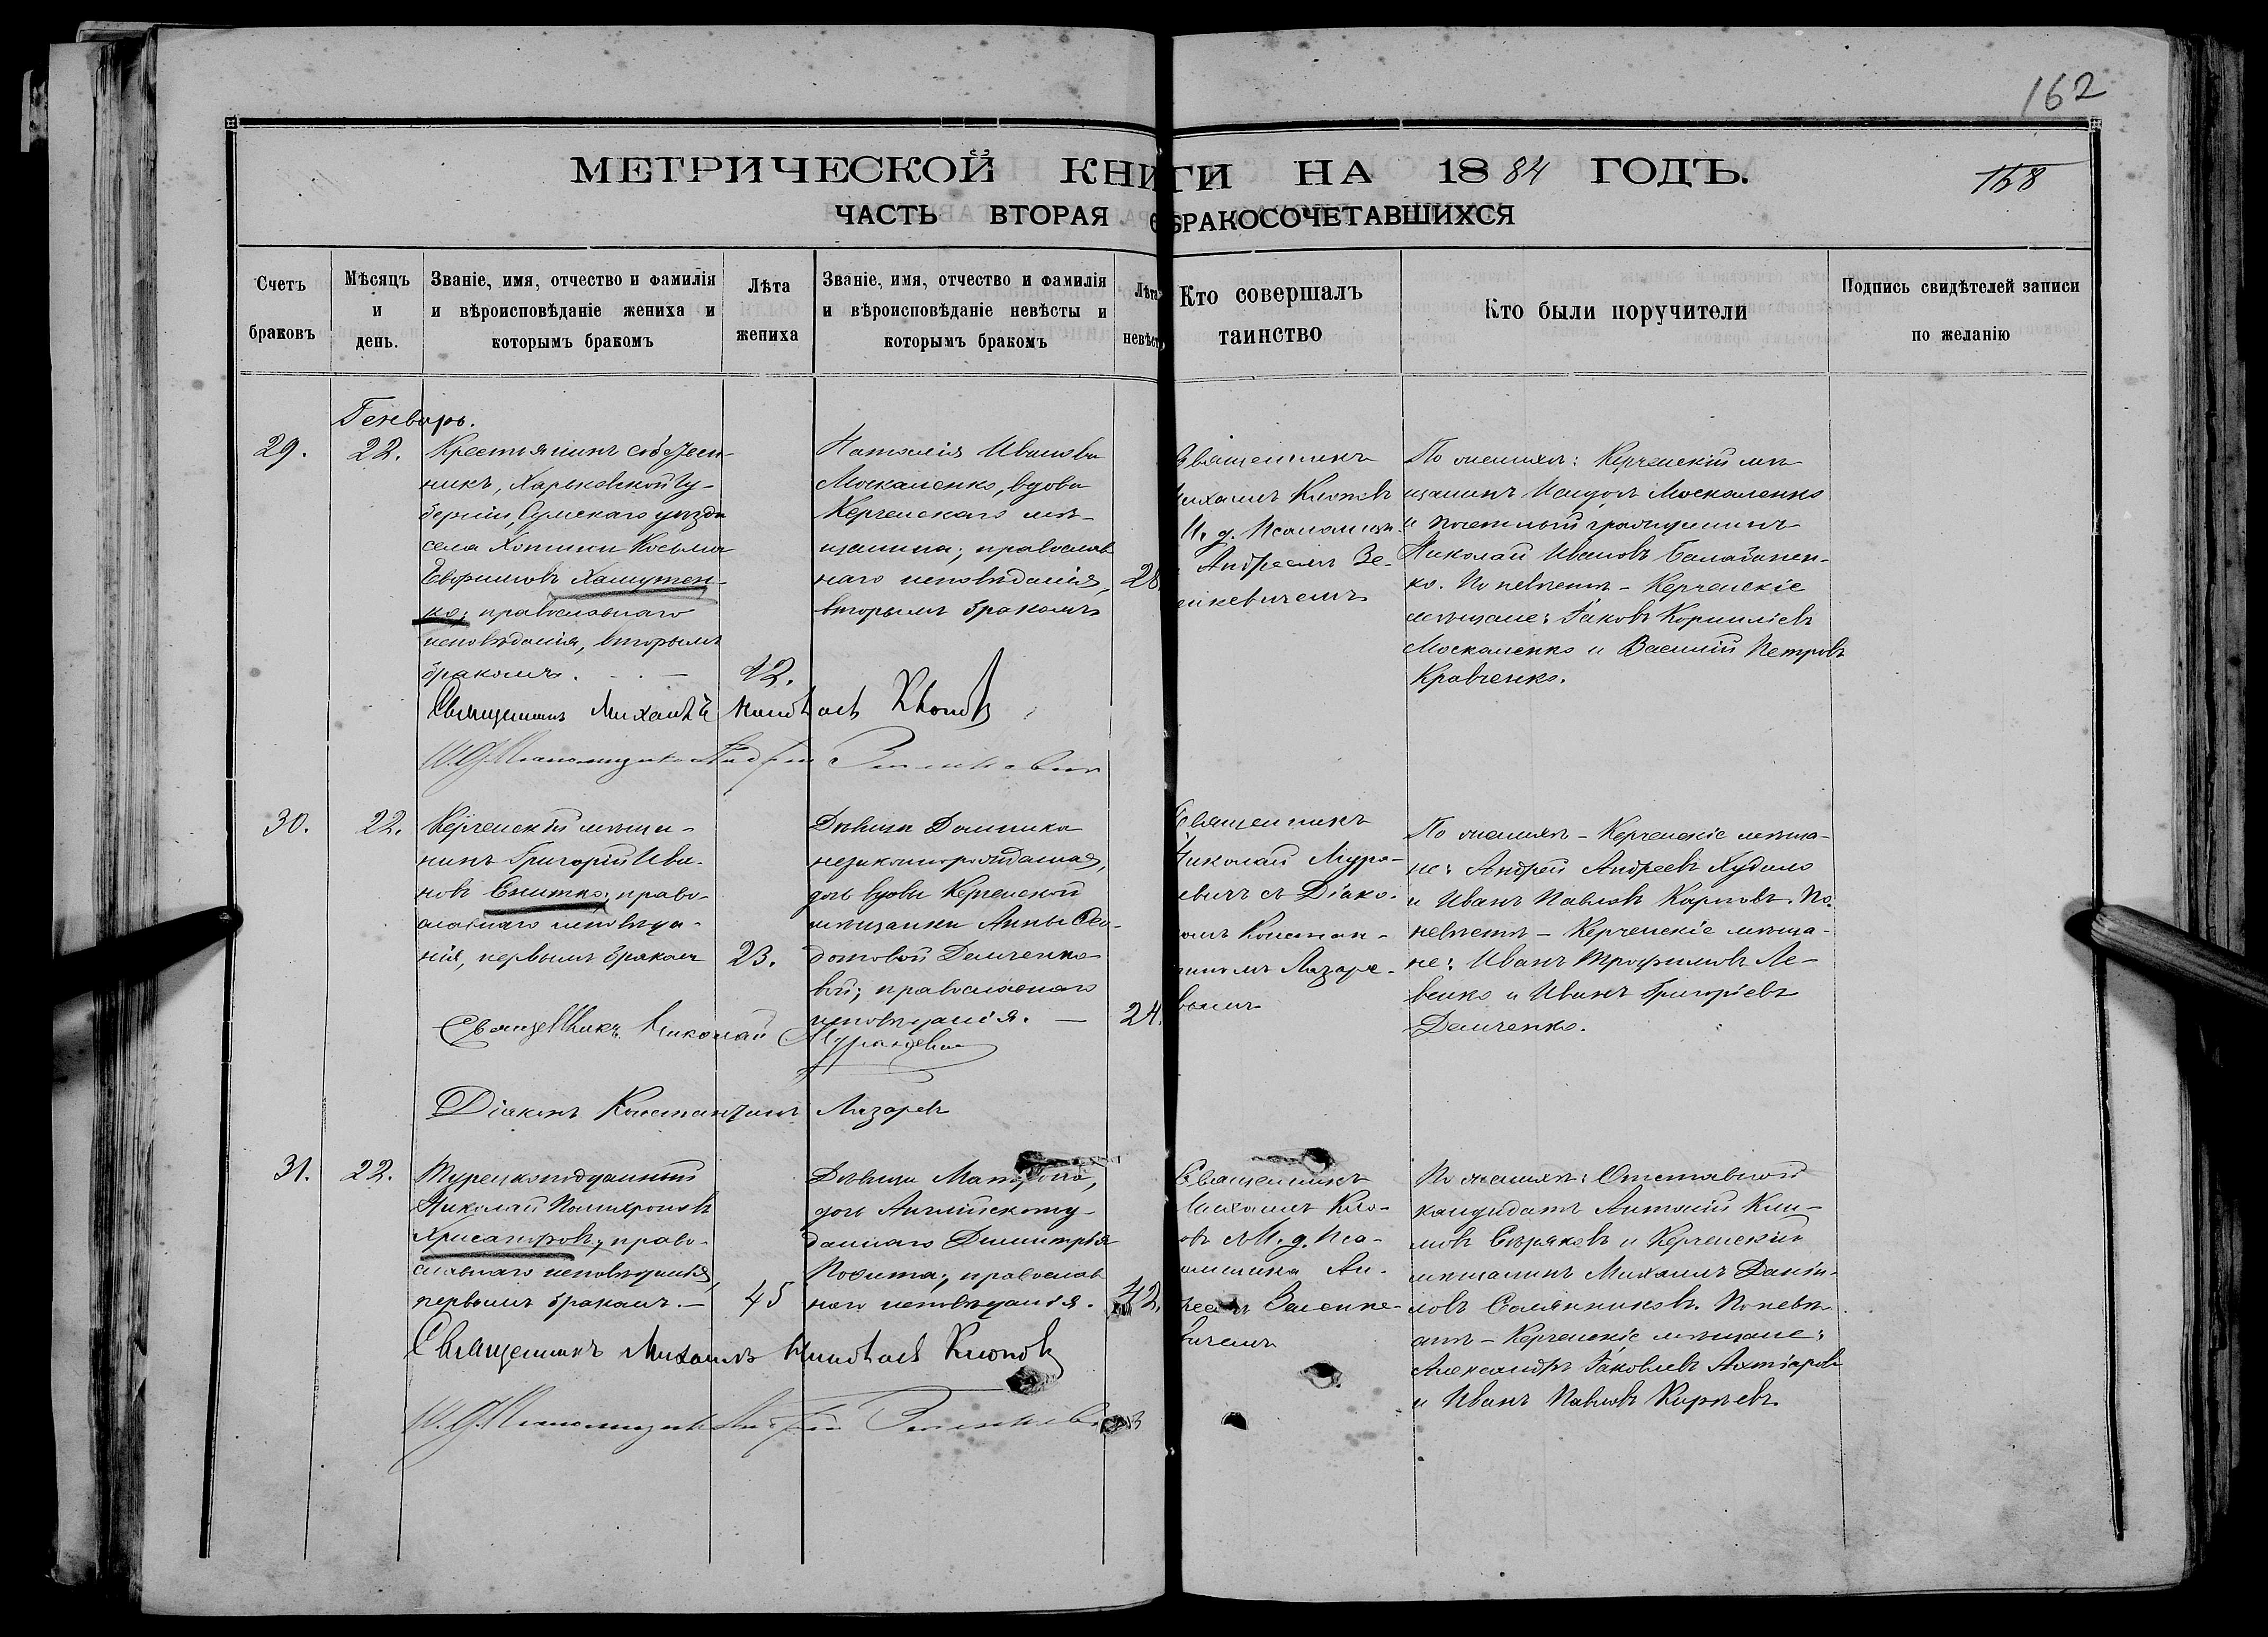 162
МЕТРИЧЕСКОЙ КНИГИ НА 1884 ГОДЪ.
158
ЧАСТЬ ВТОРАЯ О БРАКОСОЧЕТАВШИХСЯ
Счетъ браковъ
Мѣсяцъ и день.
Званіе, имя, отчество и фамилія и вѣроисповѣданіе жениха и которымъ бракомъ
Лѣта жениха
Званіе, имя, отчество и фамилія и вѣроисповѣданіе невѣсты и которымъ бракомъ
Лѣта невѣст
Кто совершалъ таинство
Кто были поручители
Подпись свидѣтелей записи по желанію
Генварь.
29.
22.
Крестьянинъ собствен-
никъ, Харьковской гу-
берніи, Сумскаго уѣзда
села Хотини Косьма
Евфимовъ
православнаго
исповѣданія, вторымъ
бракомъ.
42.
Наталія Иванова
Москаленко, вдова
Керченскаго мѣ-
щанина; православ
наго исповѣданія,
вторымъ бракомъ
28
Священникъ
Михаилъ Клоповъ
И. д. Псаломщи.
Андреемъ Зе-
ленкевичемъ
По женихѣ: Керченскій мѣ
щанинъ Исидоръ Москаленко
и почетный гражданинъ
Николай Ивановъ
ко. По невѣстѣ - Керченскіе
мѣщане: Іаковъ Корниліевъ
Москаленко и Василій Петровъ
Кравченко.
Священникъ Михаилъ Клоповъ
И. д. Псаломщика Андрей Зеленкевич
30.
22.
Керченскій мѣща-
нинъ Григорій Ива-
новъ Енитко; право-
славнаго исповѣда-
нія, первымъ бракомъ
23.
Дѣвица Домника
незаконнорожденная,
дочь вдовы Керченской
мѣщанки Анны Ѳео-
дотовой Демченко-
вой; православнаго
исповѣданія. —
24.
Священникъ
Николай Мура-
евичъ съ Діако-
номъ Констан-
тиномъ Лазаре-
вымъ
По женихѣ - Керченскіе мѣща-
не: Андрей Андреевъ Худило
и Иванъ Павловъ Карповъ. По
невѣстѣ - Керченскіе мѣща-
не: Иванъ Трофимовъ Ле-
венко и Иванъ Григоріевъ
Демченко.
Священникъ Николай
Діаконъ Константинъ Лазаревъ
31.
22.
Турецкоподданный
Николай
Хрисанфовъ; право-
славнаго исповѣданія,
первымъ бракомъ. —
45
Дѣвица Матрона,
дочь Англійскопод-
даннаго Димитрія
православ
наго исповѣданія.
42.
Священникъ
Михаилъ Кло-
овъ съ И. д. Пса-
ломщика Ан-
реемъ Зеленке-
вичемъ
По женихѣ: Отставной
кандидатъ Антоній Кли-
мовъ и Керченскій
мѣщанинъ Михаилъ Даніи-
ловъ Солянниковъ. По невѣ
стѣ - Керченскіе мѣщане:
Александръ Іаковлевъ Ахтіаровъ
и Иванъ Павловъ
Священникъ Михаилъ Клоповъ
И. д. Псаломщика Андрей Зеленкевичъ